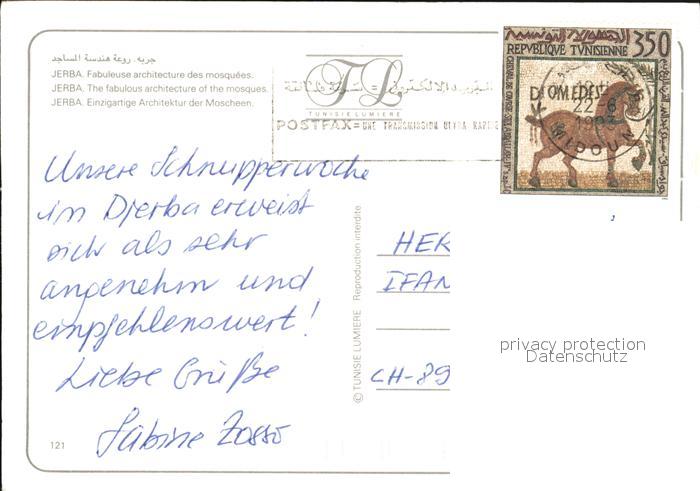 جربه. روعة هندسة المساجد
JERBA. Fabuleuse architecture des mosquées.
JERBA. The fabulous architecture of the mosques.
JERBA. Einzigartige Architektur der Moscheen.
TL
TUNISIE LUMIERE
POSTFAX = UNE TRANSMISSION ULTRA RAPIDE
الجمهورية التونسية 350
REPVBLIQUE TVNISIENNE
DIOMEDES
22-6
MIDOUN
Unsere Schnupperwoche
in Djerba erweist
sich als sehr
angenehm und
empfehlenswert!
Liebe Grüße
Sabine Zosso
121
© TUNISIE LUMIERE Reproduction interdite
HER
IFAN
CH-89
privacy protection
Datenschutz